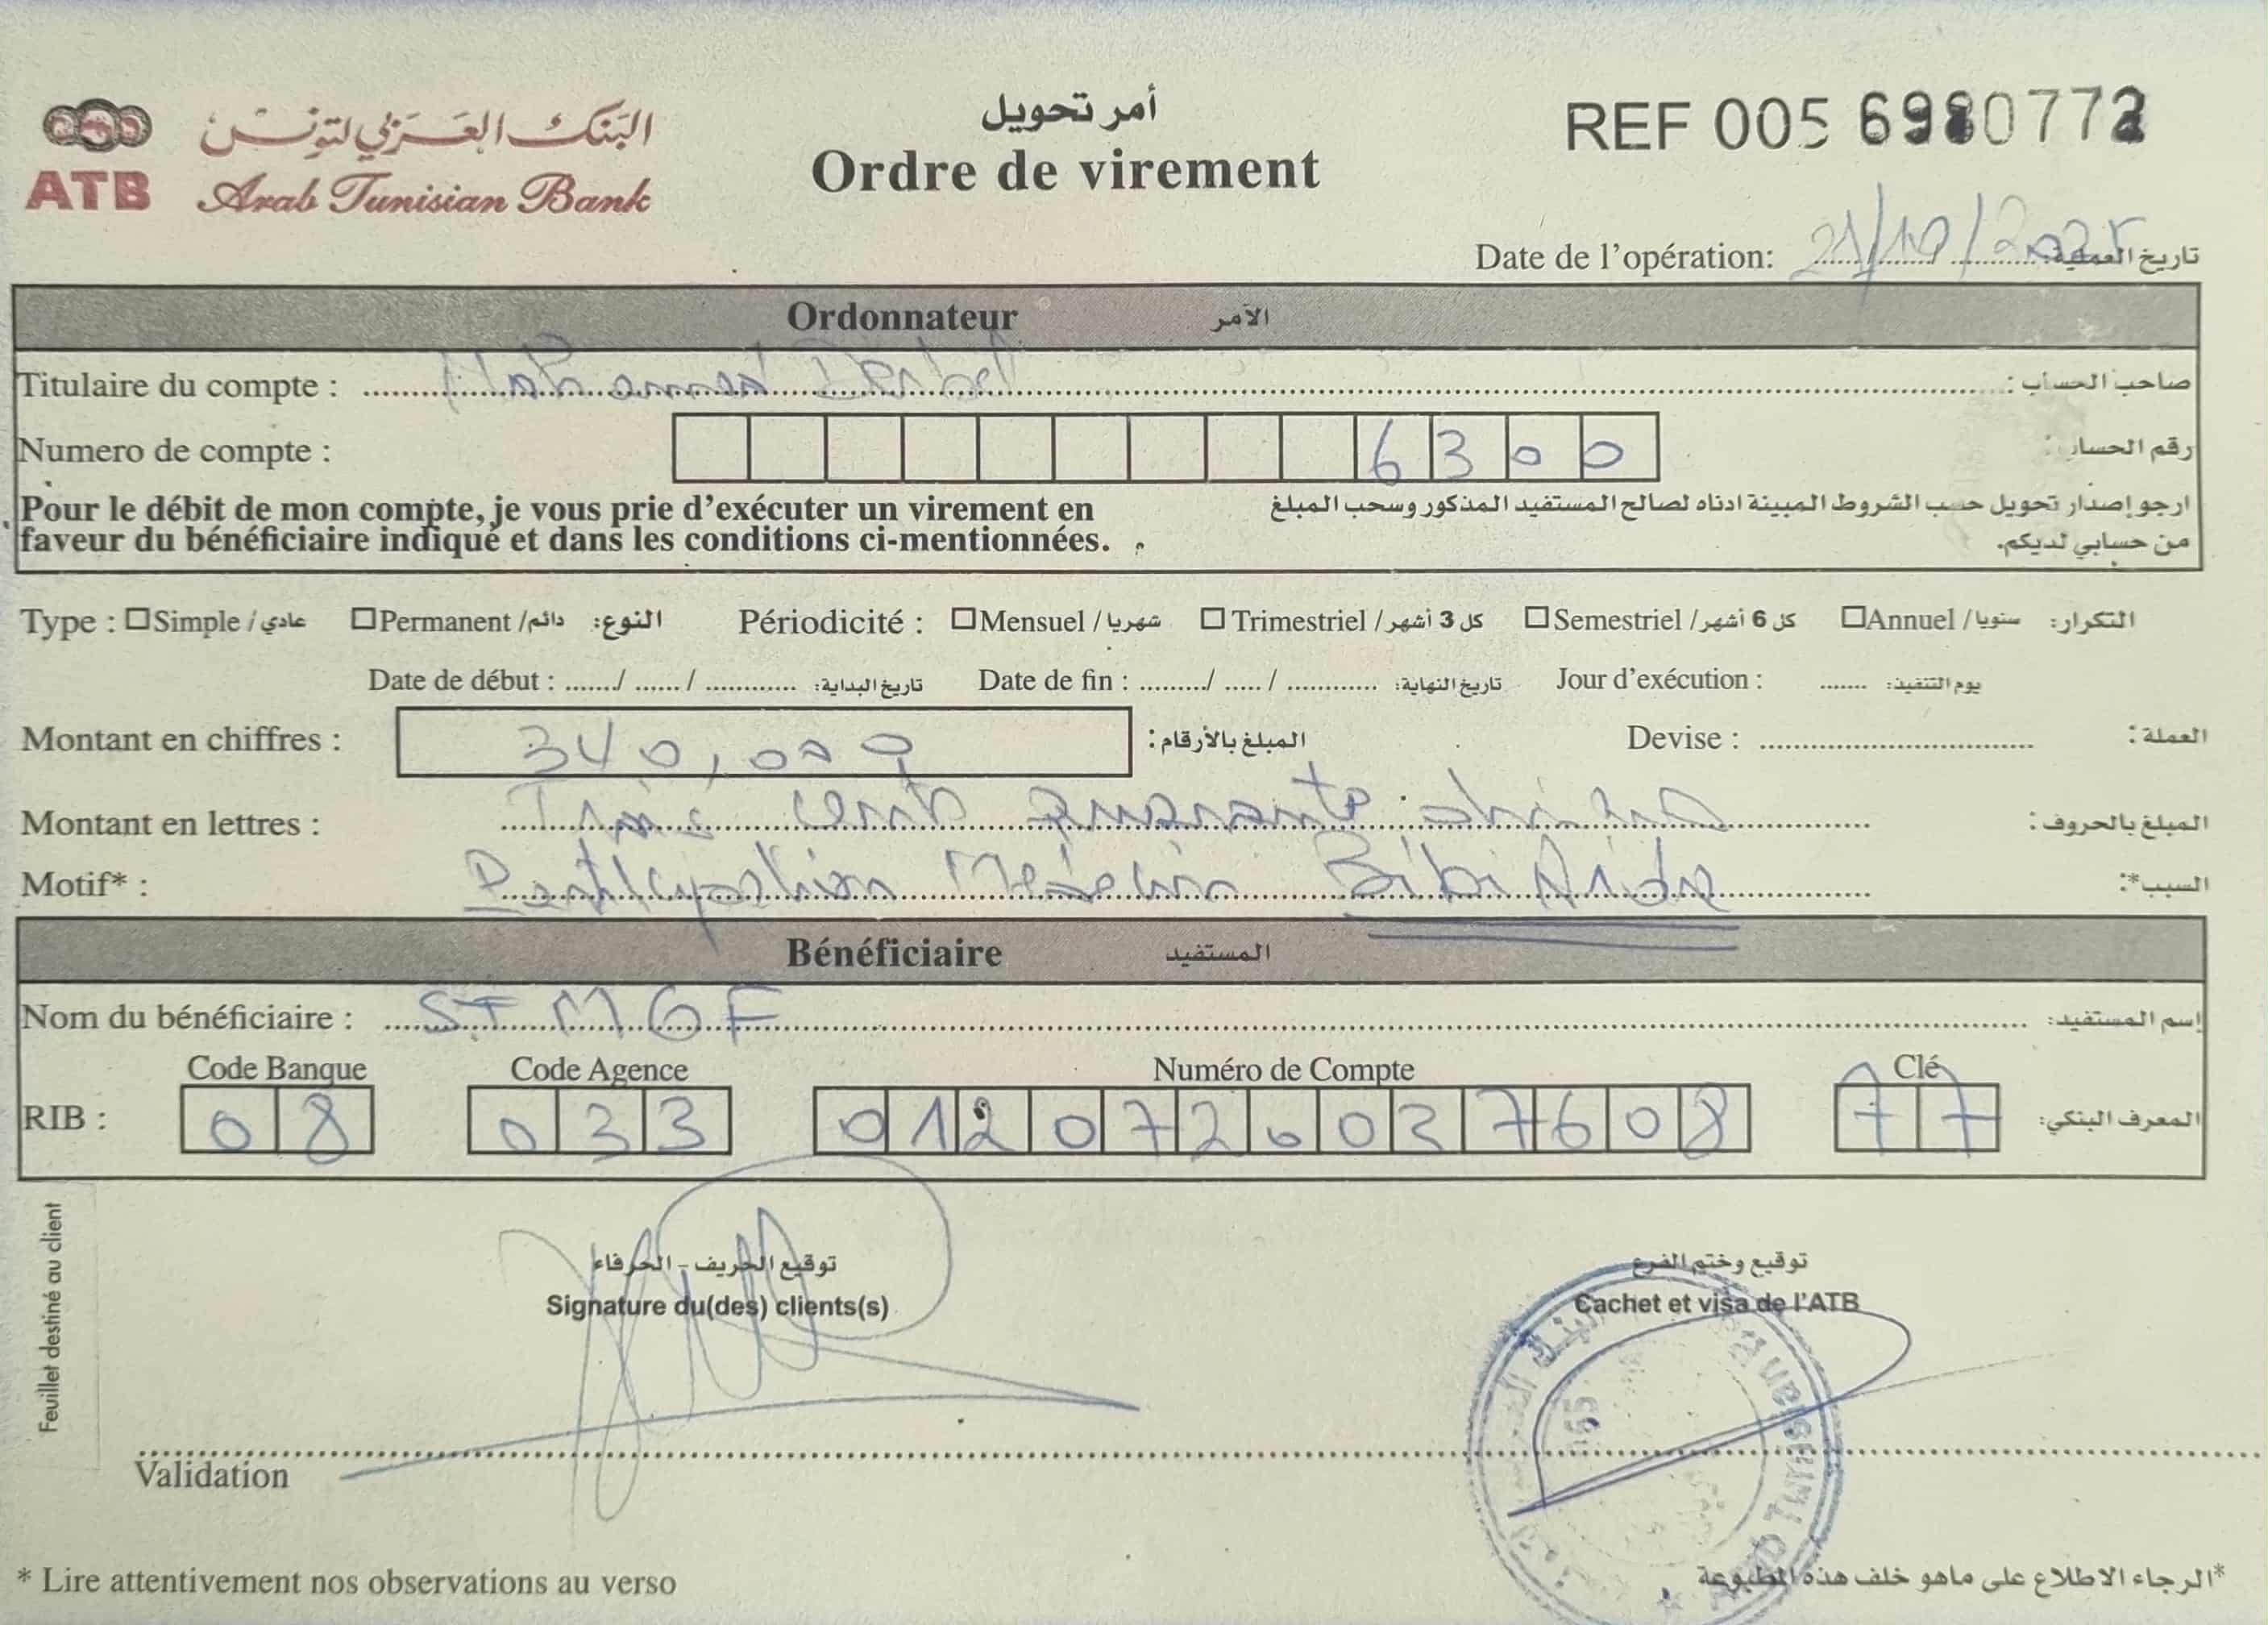 البنك العربي لتونس
ATB Arab Tunisian Bank
أمر تحويل
Ordre de virement
REF 005
Date de l'opération: 21/10/ تاريخ العملية:
Ordonnateur الآمر
Titulaire du compte : Mohamed صاحب الحساب :
Numero de compte : 6300 رقم الحساب :
Pour le débit de mon compte, je vous prie d'exécuter un virement en
faveur du bénéficiaire indiqué et dans les conditions ci-mentionnées.
ارجو إصدار تحويل حسب الشروط المبينة ادناه لصالح المستفيد المذكور وسحب المبلغ
من حسابي لديكم.
Type : Simple / عادي Permanent / دائم النوع: Périodicité : Mensuel / شهريا Trimestriel / كل 3 أشهر Semestriel / كل 6 أشهر Annuel / سنويا التكرار:
Date de début : ......./ ...... / ............ تاريخ البداية: Date de fin : ........./ ..... / ............ تاريخ النهاية: Jour d'exécution : ....... يوم التنفيذ:
Montant en chiffres : 340,000 المبلغ بالأرقام: Devise : العملة:
Montant en lettres : Trois cent quarante dinars المبلغ بالحروف:
Motif* : Participation Médecin السبب*:
Bénéficiaire المستفيد
Nom du bénéficiaire : STMGF إسم المستفيد:
Code Banque Code Agence Numéro de Compte Clé
RIB : 08 033 0120726037608 77 المعرف البنكي:
توقيع الحريف - الحرفاء
Signature du(des) clients(s)
توقيع وختم الفرع
Cachet et visa de l'ATB
Feuillet destiné au client
Validation
* Lire attentivement nos observations au verso
*الرجاء الاطلاع على ماهو خلف هذه المطبوعة